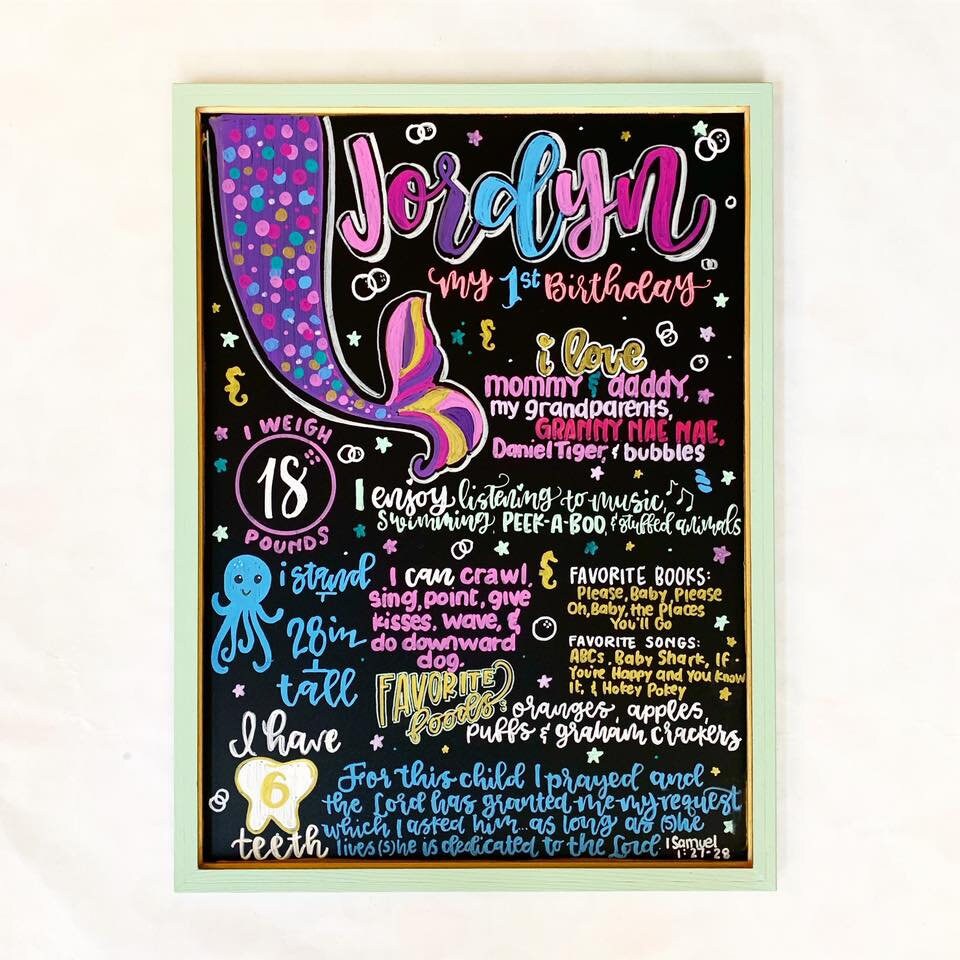 Jordyn
my 1st Birthday
i love
mommy & daddy,
my grandparents,
GRANNY NAE NAE,
Daniel Tiger, & bubbles
I WEIGH
18
POUNDS
I enjoy listening to music,
Swimming, PEEK-A-BOO, & stuffed animals
i stand
28in
tall
I can crawl,
sing, point, give
kisses, wave, &
do downward
dog.
FAVORITE BOOKS:
Please, Baby, Please
Oh, Baby, the Places
You'll Go
FAVORITE SONGS:
ABCs, Baby Shark, If
You're Happy and You Know
It, & Hokey Pokey
FAVORITE
foods:
oranges, apples,
puffs & graham crackers
I have
6
teeth
For this child I prayed and
the Lord has granted me my request
which I asked him...as long as (s)he
lives (s)he is dedicated to the Lord. 1 Samuel
1:27-28